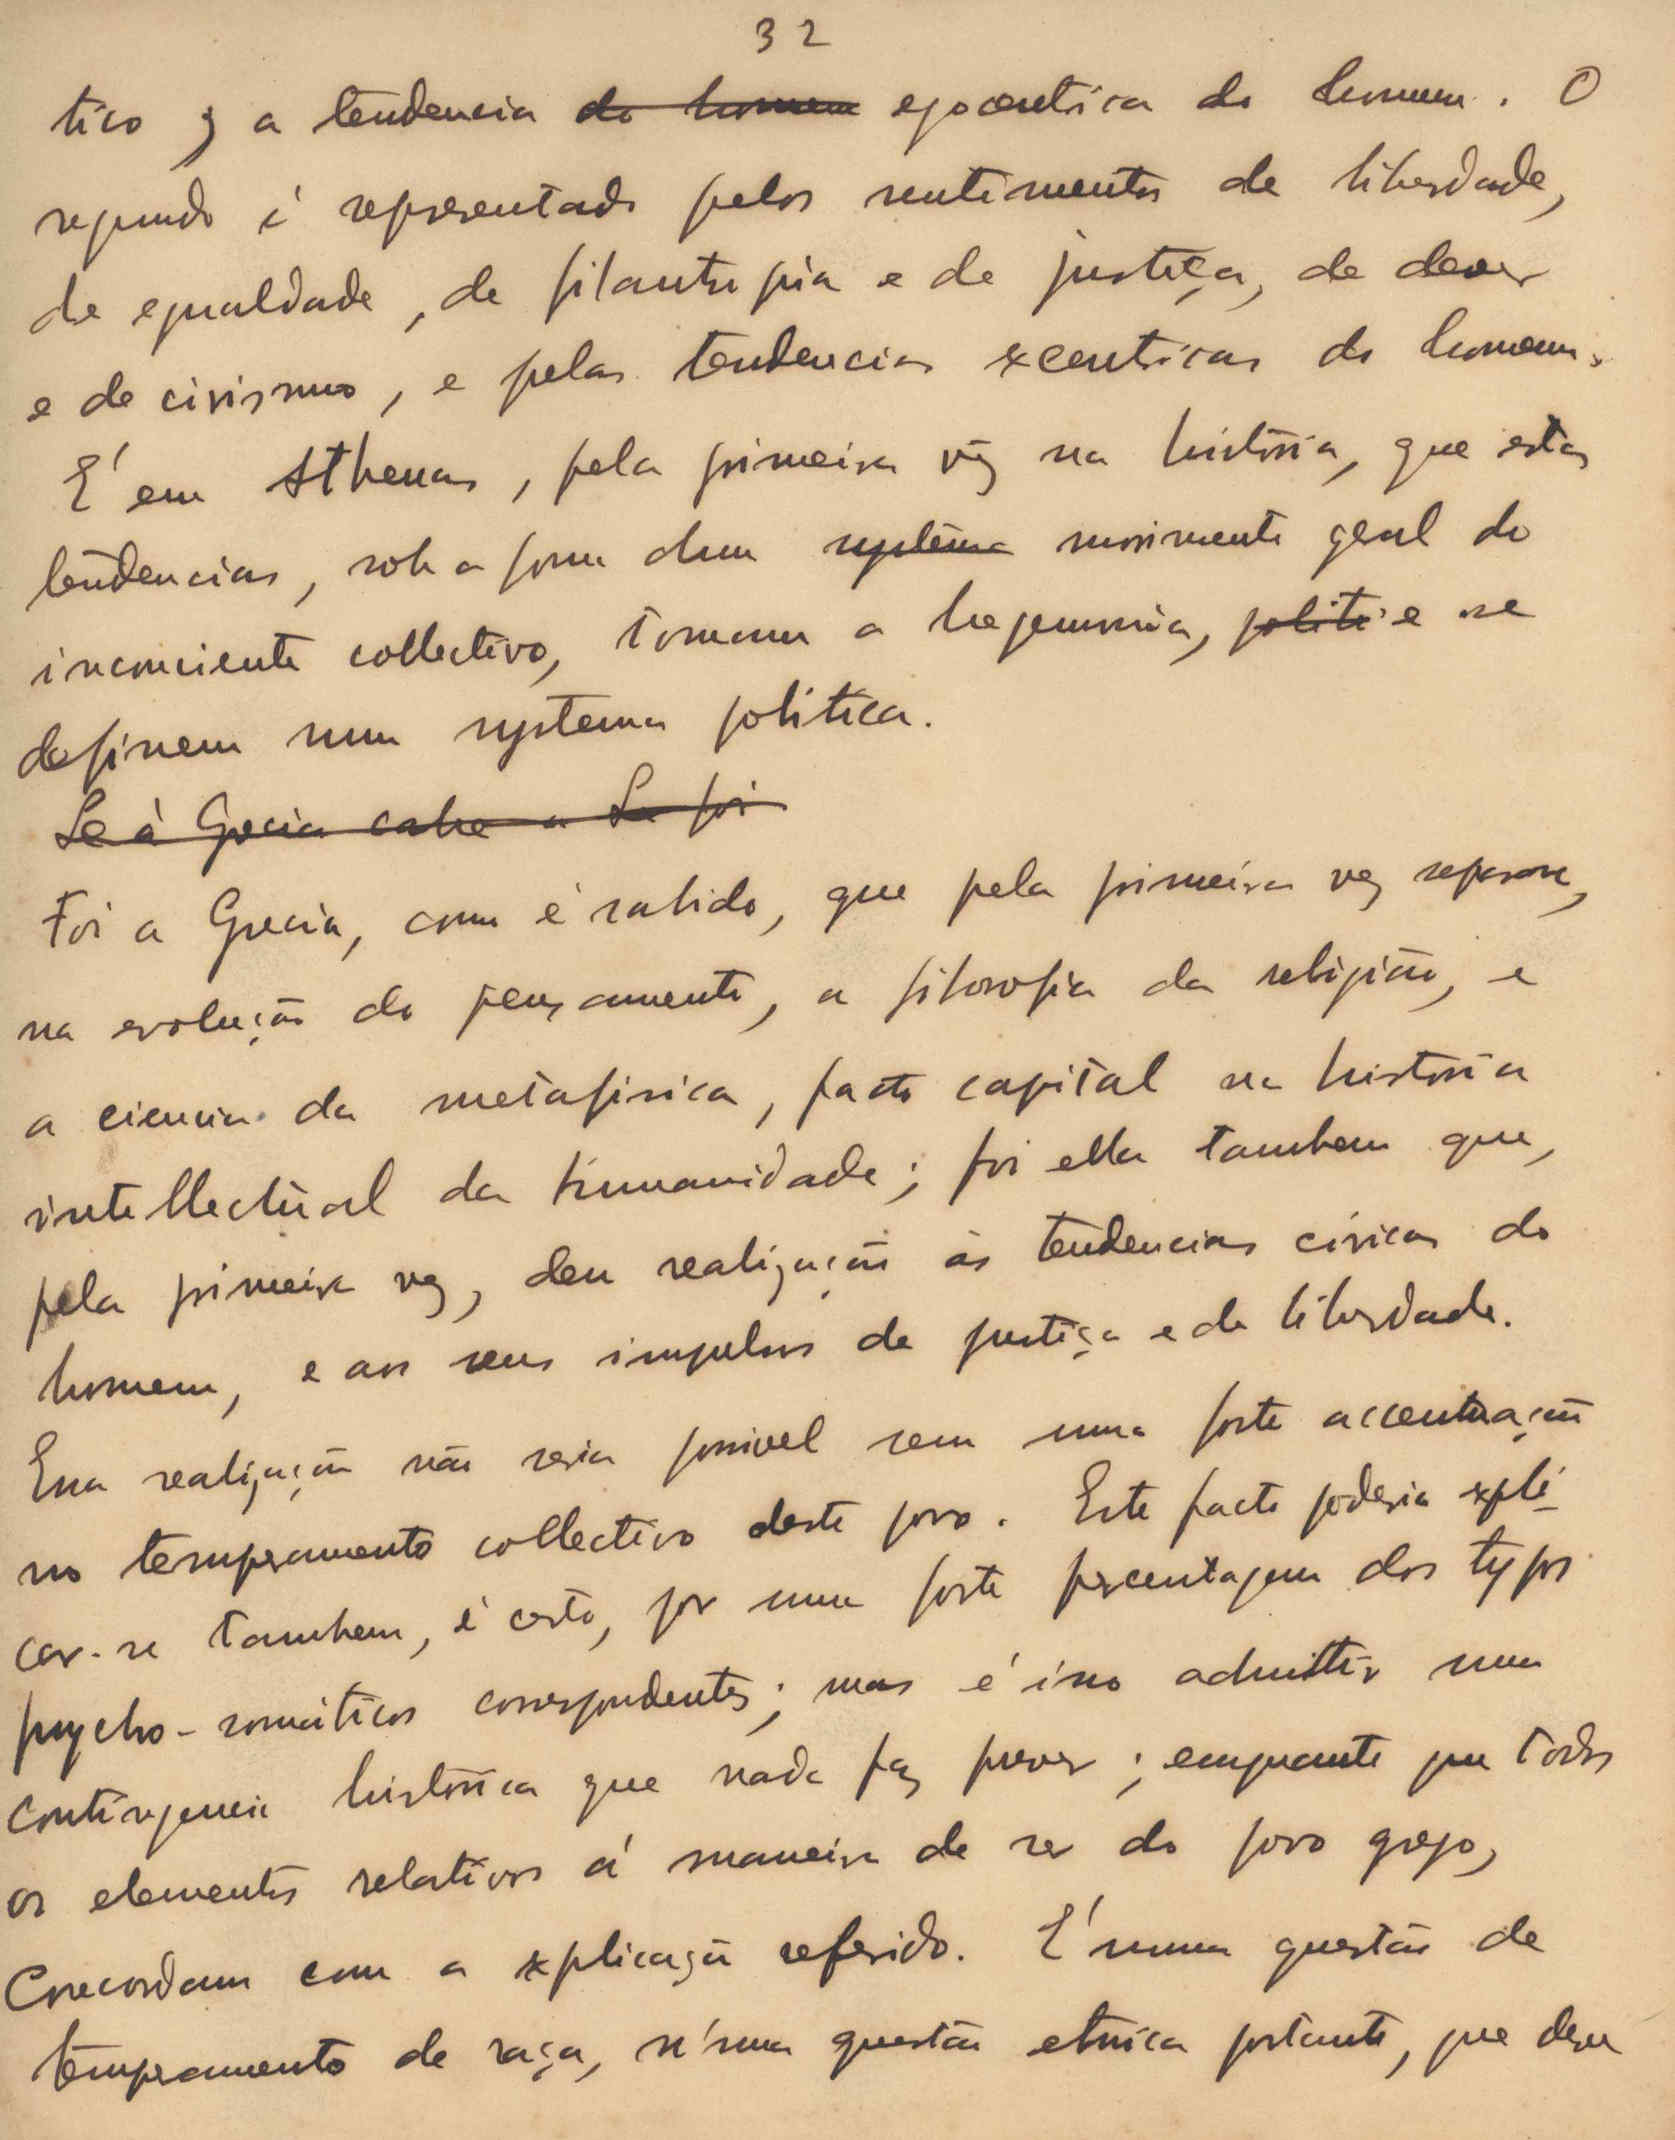 32
tico ; a tendencia do homem egocentrica do homem. O
segundo é representado pelos sentimentos de liberdade,
de egualdade, de filantropia e de justiça, de dever
e de civismo, e pelas tendencias excentricas do homem.
É em Athenas, pela primeira vêz na história, que estas
tendencias, sob a forma dum systema movimento geral do
inconsciente collectivo, tomam a hegemonia, politi e se
definem num systema politica.
Se à Grecia cabe a Se foi
Foi a Grecia, como é sabido, que pela primeira vez separou,
na evolução do pensamento, a filosofia da religião, e
a ciencia da metafisica, facto capital na história
intellectual da humanidade; foi ella tambem que,
pela primeira vez, deu realização às tendencias civicas do
homem, e aos seus impulsos de justiça e de liberdade.
Essa realização não seria possivel sem uma forte accentuação
no temperamento collectivo deste povo. Este facto poderia expli-
car-se tambem, é certo, por uma forte percentagem dos typos
psycho-somáticos correspondentes; mas é isso admittir uma
contingencia histórica que nada faz prever; emquanto que todos
os elementos relativos á maneira de ser do povo grego,
Concordam com a explicação referido. É numa questão de
temperamento de raça, n'uma questão etnica portanto, que deve